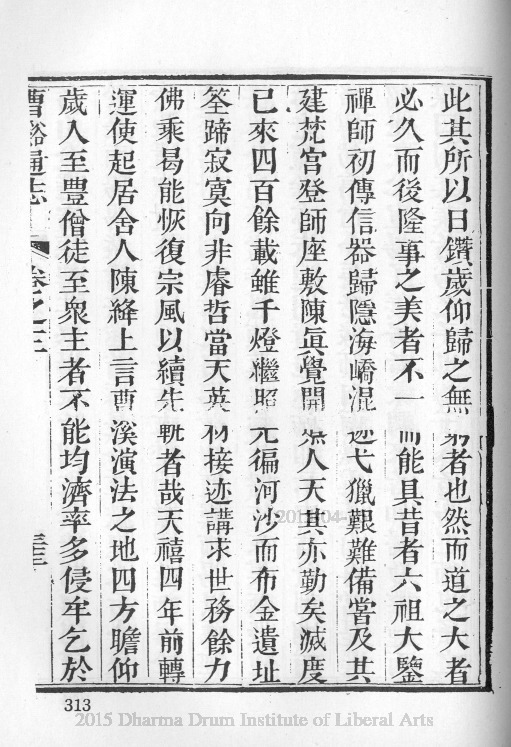 此其所以日鑽歲仰歸之無窮者也然而道之大者
必久而後隆事之美者不一而能具昔者六祖大鑒
禪師初傳信器歸隱海嶠混迹弋獵艱難備嘗及其
建梵宮登師座敷陳眞覺開 人天其亦勤矣滅度
已來四百餘載雖千燈繼照 徧河沙而布金遺址
筌蹄寂寞向非睿哲當天英材接迹講求世務餘力
佛乘曷能恢復宗風以續先軌者哉天禧四年前轉
運使起居舍人陳絳上言曹溪演法之地四方瞻仰
歲入至豊僧徒至衆主者不能均濟率多侵牟乞於
曹谿通志 卷之三 三
313
2015 Dharma Drum Institute of Liberal Arts